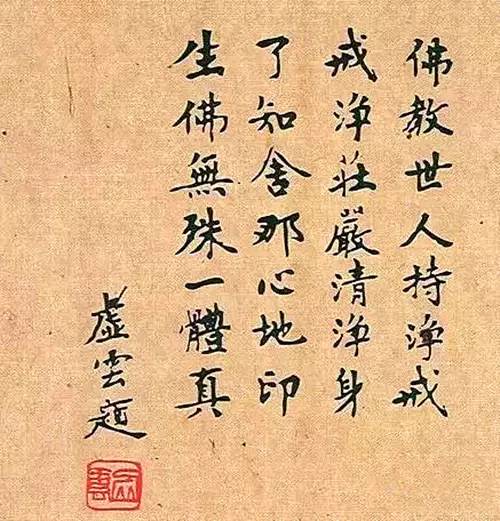 佛教世人持淨戒
戒淨莊嚴清淨身
了知舍那心地印
生佛無殊一體真
虛雲題
虛雲